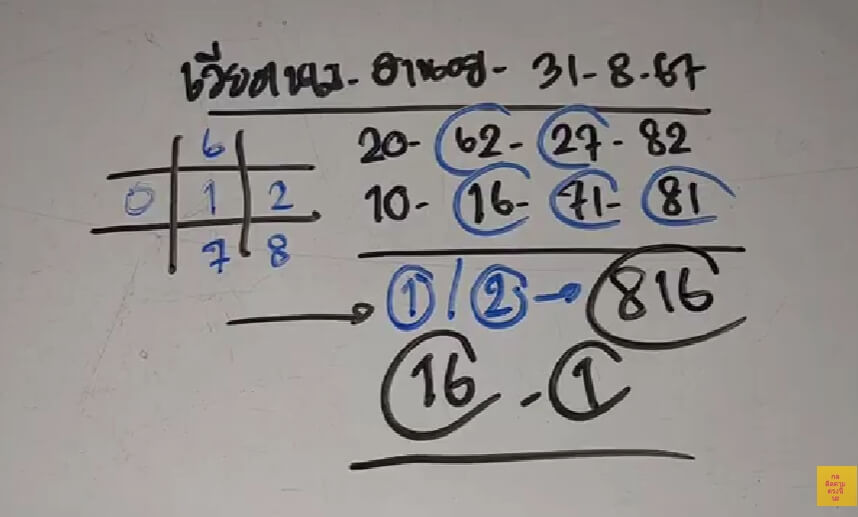 เวียดนาม - ฮานอย - 31-8-67
6
0 1 2
7 8
20- 62- 27- 82
10- 16- 71- 81
1 / 2 → 816
16 - 1
กด
ติดตาม